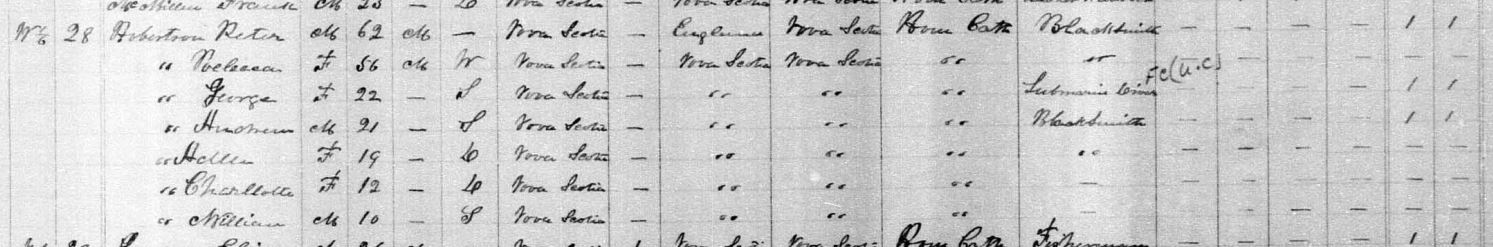 McMillan Frank M 23 — L Nova Scotia — Nova Scotia Nova Scotia Rom Cath
W/6 28 Robertson Peter M 62 M — Nova Scotia — England Nova Scotia Rom Cath Blacksmith — — — — 1 1
" F 56 M W Nova Scotia — Nova Scotia Nova Scotia " " — — — —
" George F 22 — S Nova Scotia — " " " Submarine Diver FC(U.C) — — — — 1 1
" Andrew M 21 — S Nova Scotia — " " " Blacksmith — — — — 1 1
" Hellen F 19 — D Nova Scotia — " " " " — — — —
" Charllotte F 12 — D Nova Scotia — " " " — — — — —
" William M 10 — S Nova Scotia — " " " — — — — —
Nova Scotia Rom Cath Fisherman — — — — 1 1